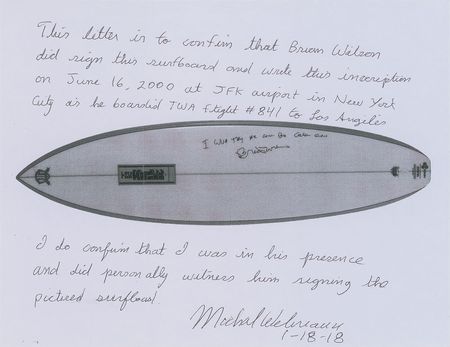 This letter is to confirm that Brian Wilson
did sign this surfboard and wrote this inscription
on June 16, 2000 at JFK airport in New York
City as he boarded TWA flight #841 to Los Angeles
I do confirm that I was in his presence
and did personally witness him signing the
pictured surfboard.
1-18-18